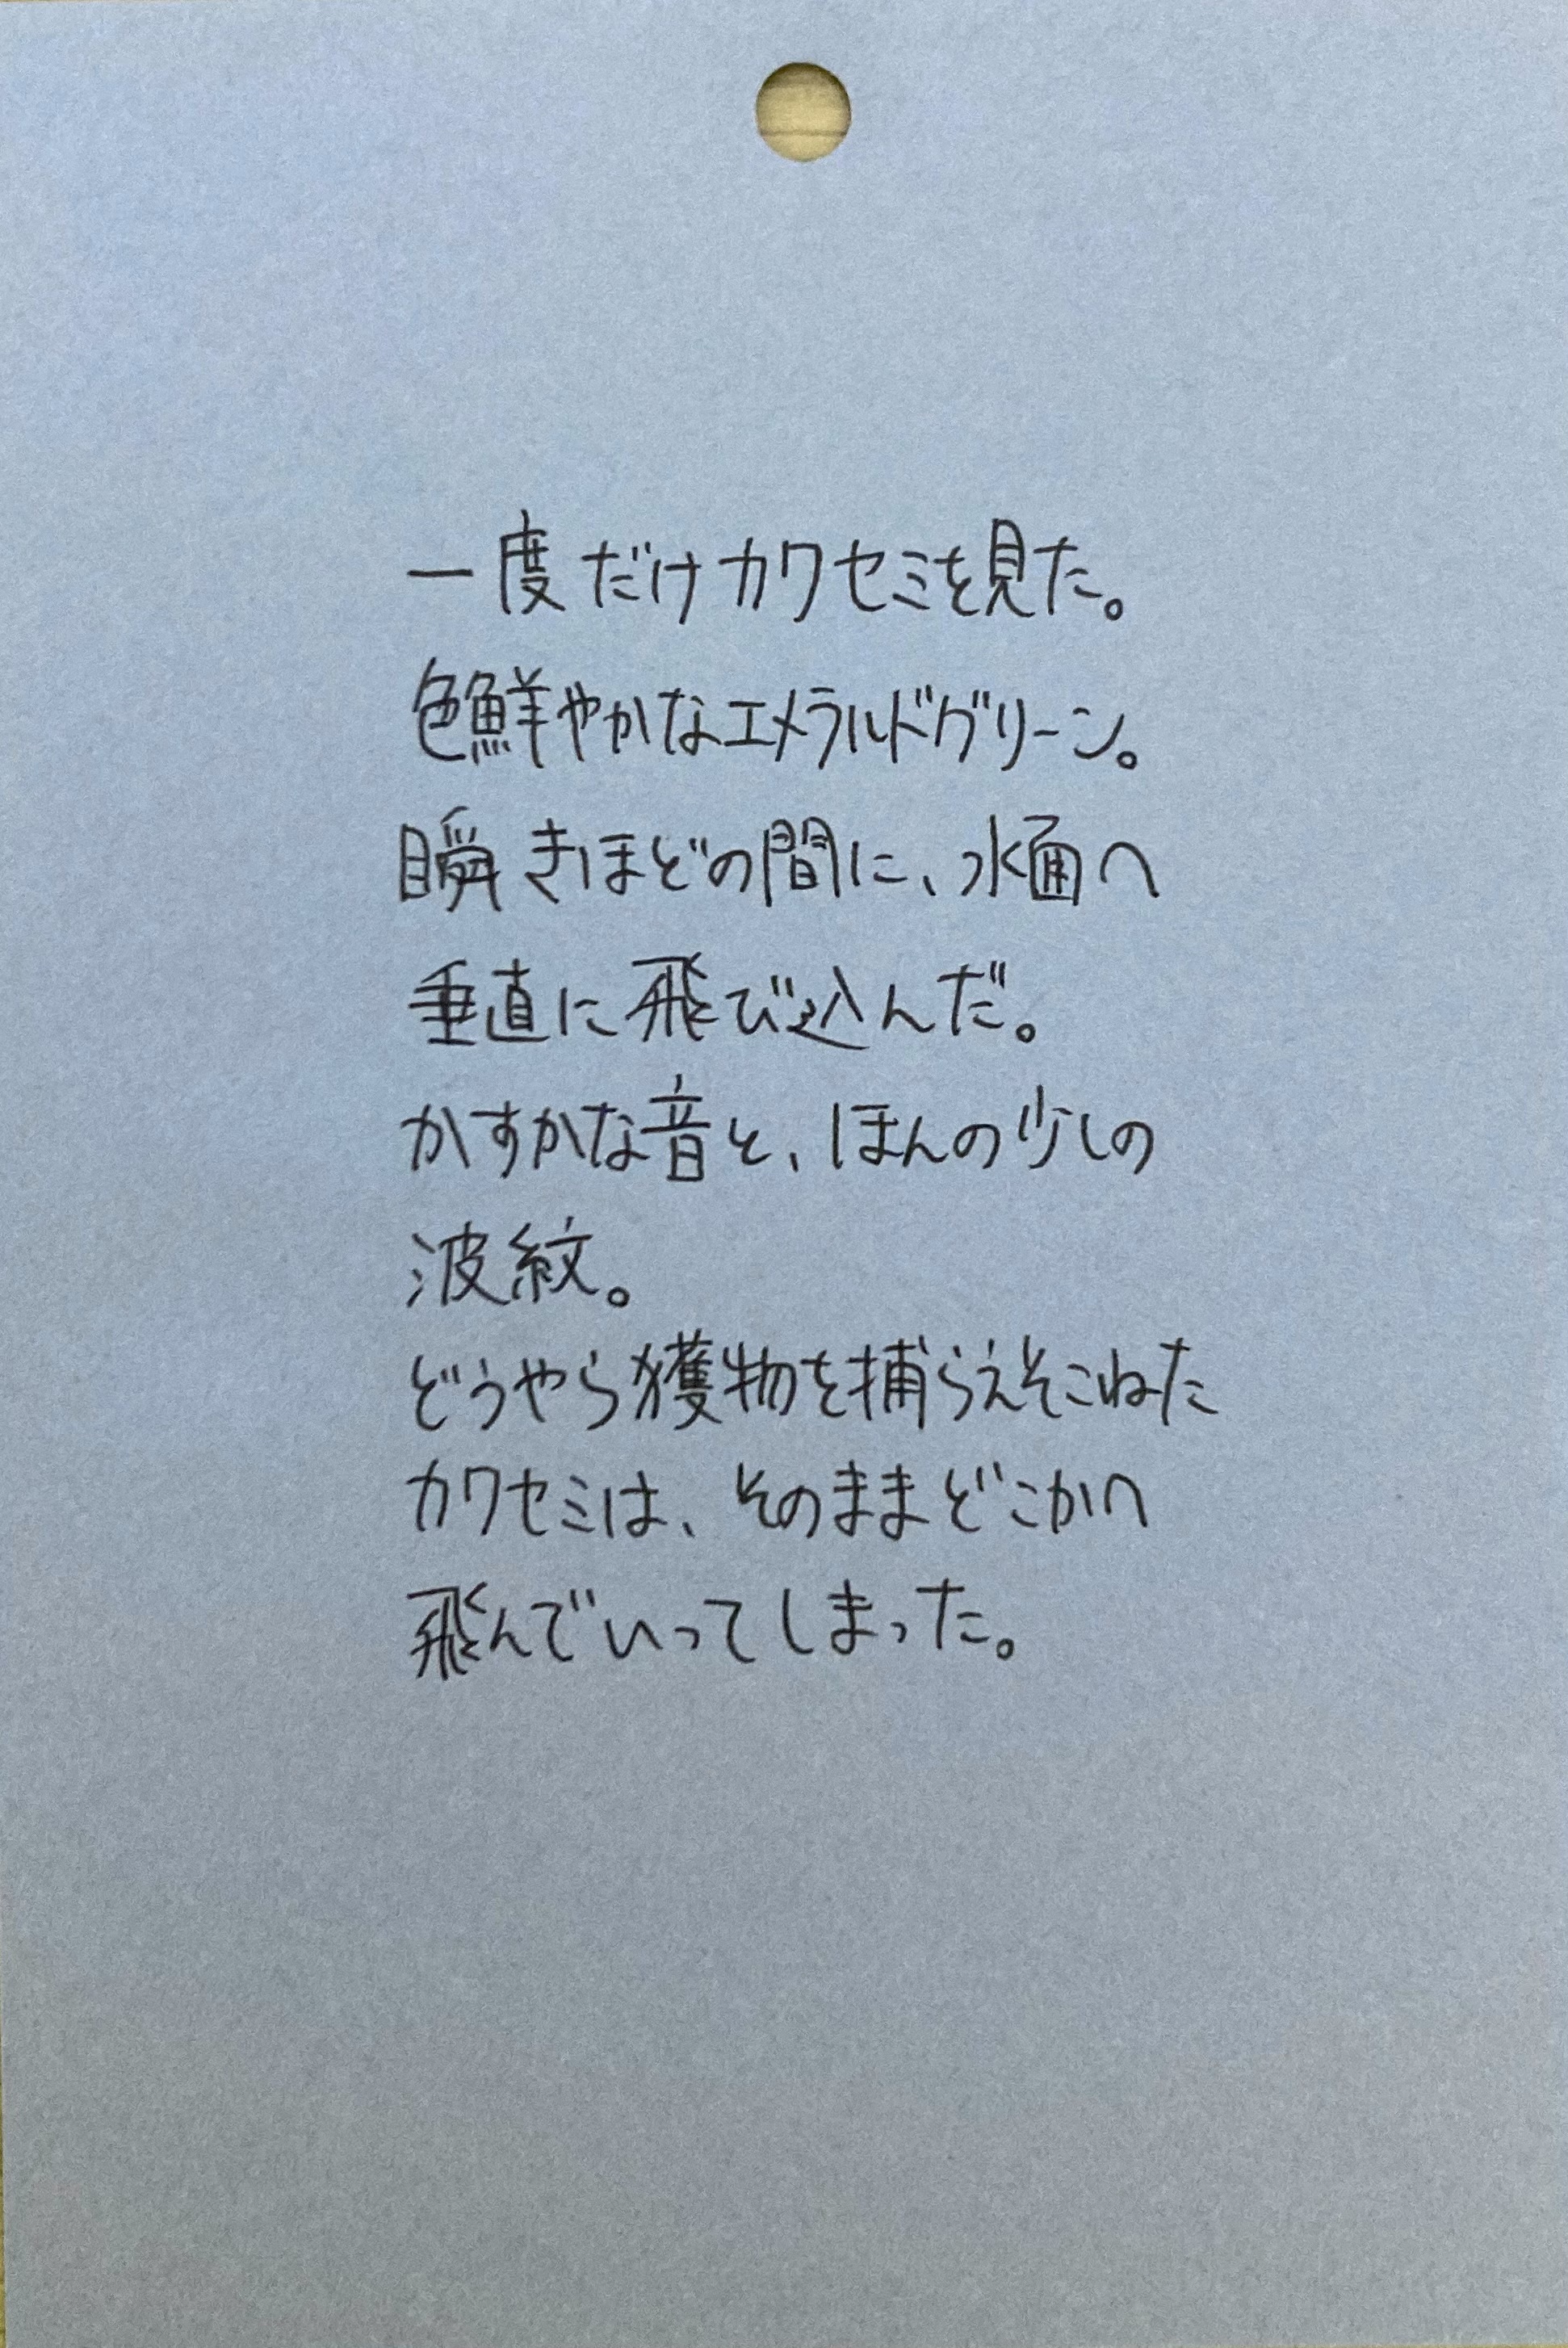 一度だけカワセミを見た。
色鮮やかなエメラルドグリーン。
瞬きほどの間に、水面へ
垂直に飛び込んだ。
かすかな音と、ほんの少しの
波紋。
どうやら獲物を捕らえそこねた
カワセミは、そのままどこかへ
飛んでいってしまった。